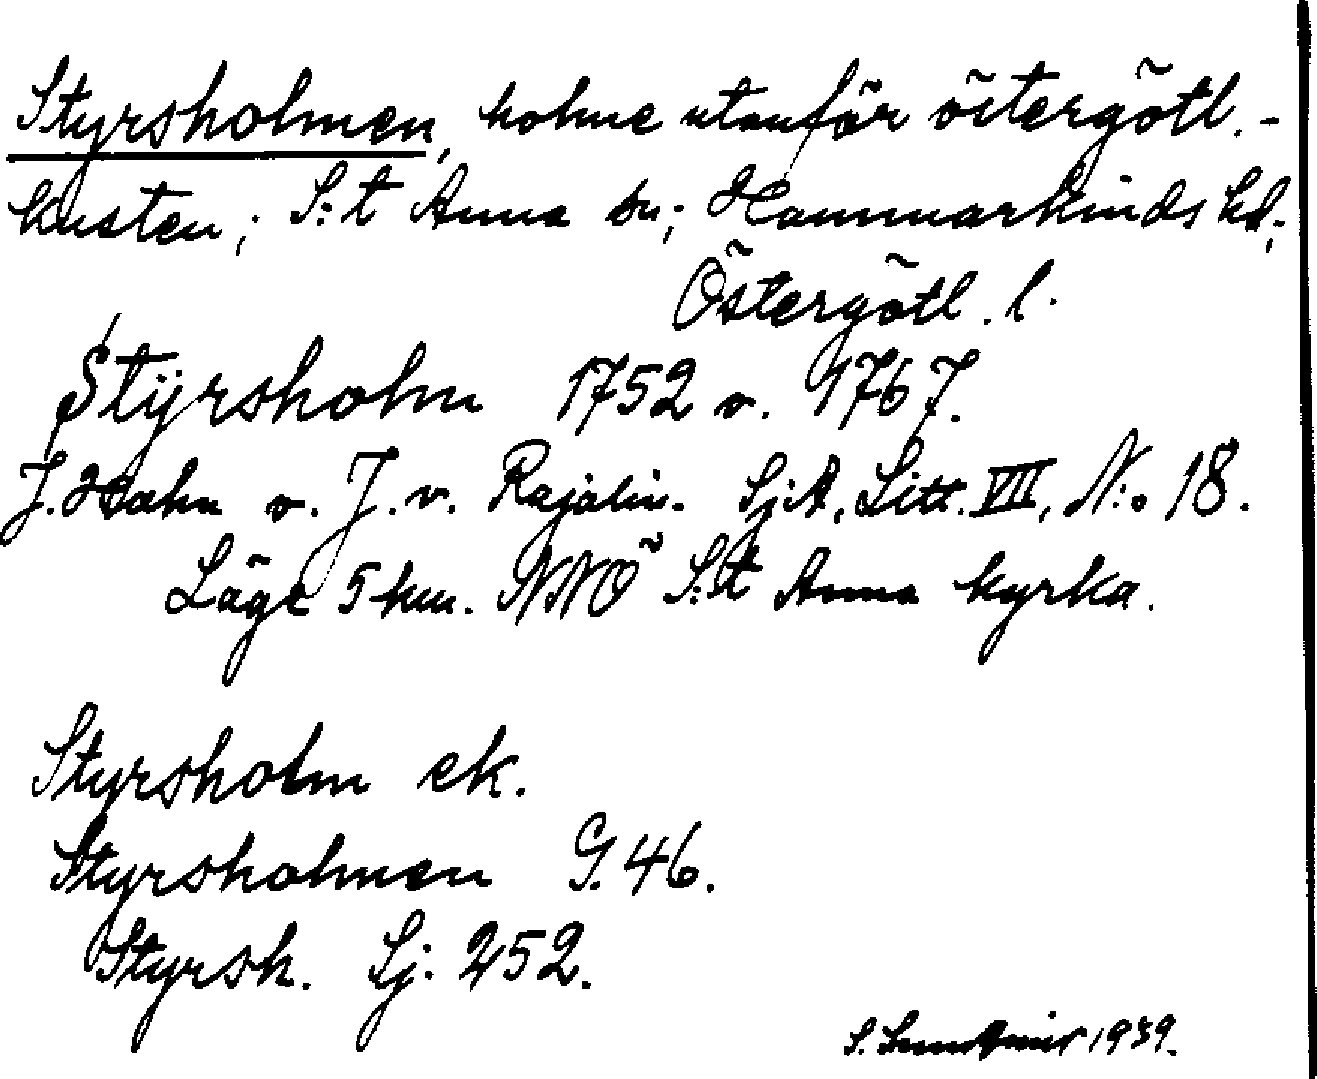 Styrsholmen, holme utanför östergötl.-
kusten; S:t Anna sn; Hammarkinds hd;
Östergötl. l.
Stÿrsholm 1752 o. 1767.
J. Hahn o. J. v. Rajalin. SjA, Litt. VII, N:o 18.
Läge 5 km. NNÖ S:t Anna kyrka.
Styrsholm ek.
Styrsholmen G. 46.
Styrsh. Sj. 252.
S. 1939.